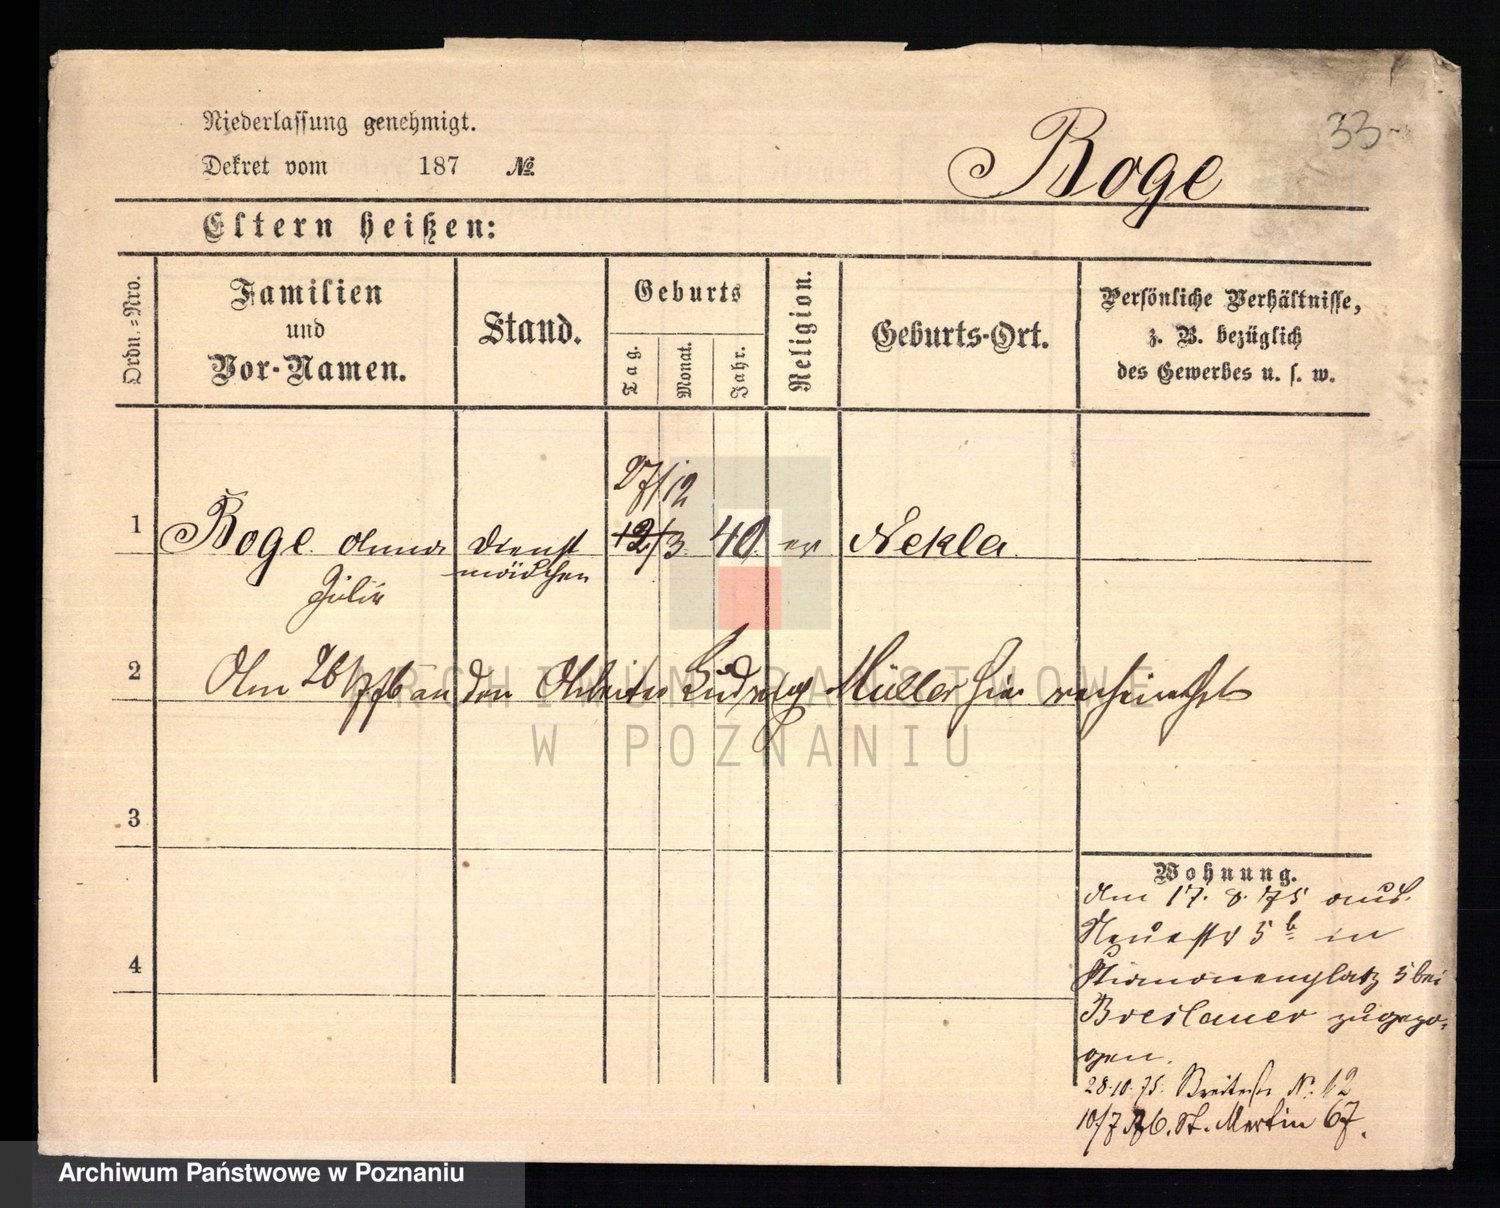 33
Niederlassung genehmigt.
Dekret vom 187 №
Boge
Eltern heißen:
Ordn.-Nro.
Familien
und
Vor-Namen.
Stand.
Geburts
Tag.
Monat.
Jahr.
Religion.
Geburts-Ort.
Persönliche Verhältnisse,
z. B. bezüglich
des Gewerbes u. s. w.
27/12
1 Boge Anna Dienst 12/3. 40. ev Nekla
mädchen
Julie
2 Am 26/ 76 an den Arbeiter Ludwig Müller hier verheirathet
ARCHIWUM PAŃSTWOWE
W POZNANIU
3
Wohnung.
Am 17. 8. 75 aus
Neuestr 5 b in
4
5 bei
Breslauer zugezo-
gen.
28.10.75. Breitestr N. 12
10/7 76. St. Martin 67.
Archiwum Państwowe w Poznaniu